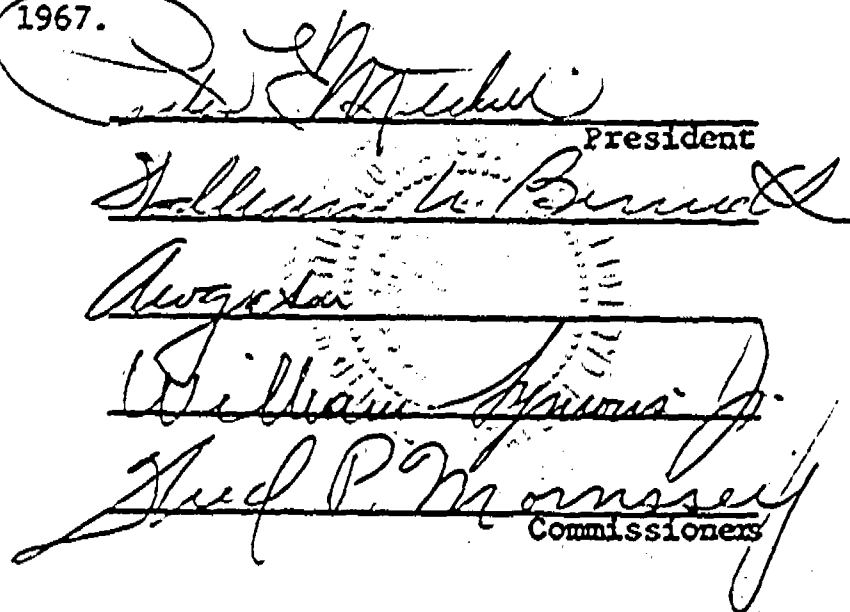 1967.
Peter E Mitchell
President
William M. Bennett
William Symons Jr.
Fred P. Morrissey
Commissioners